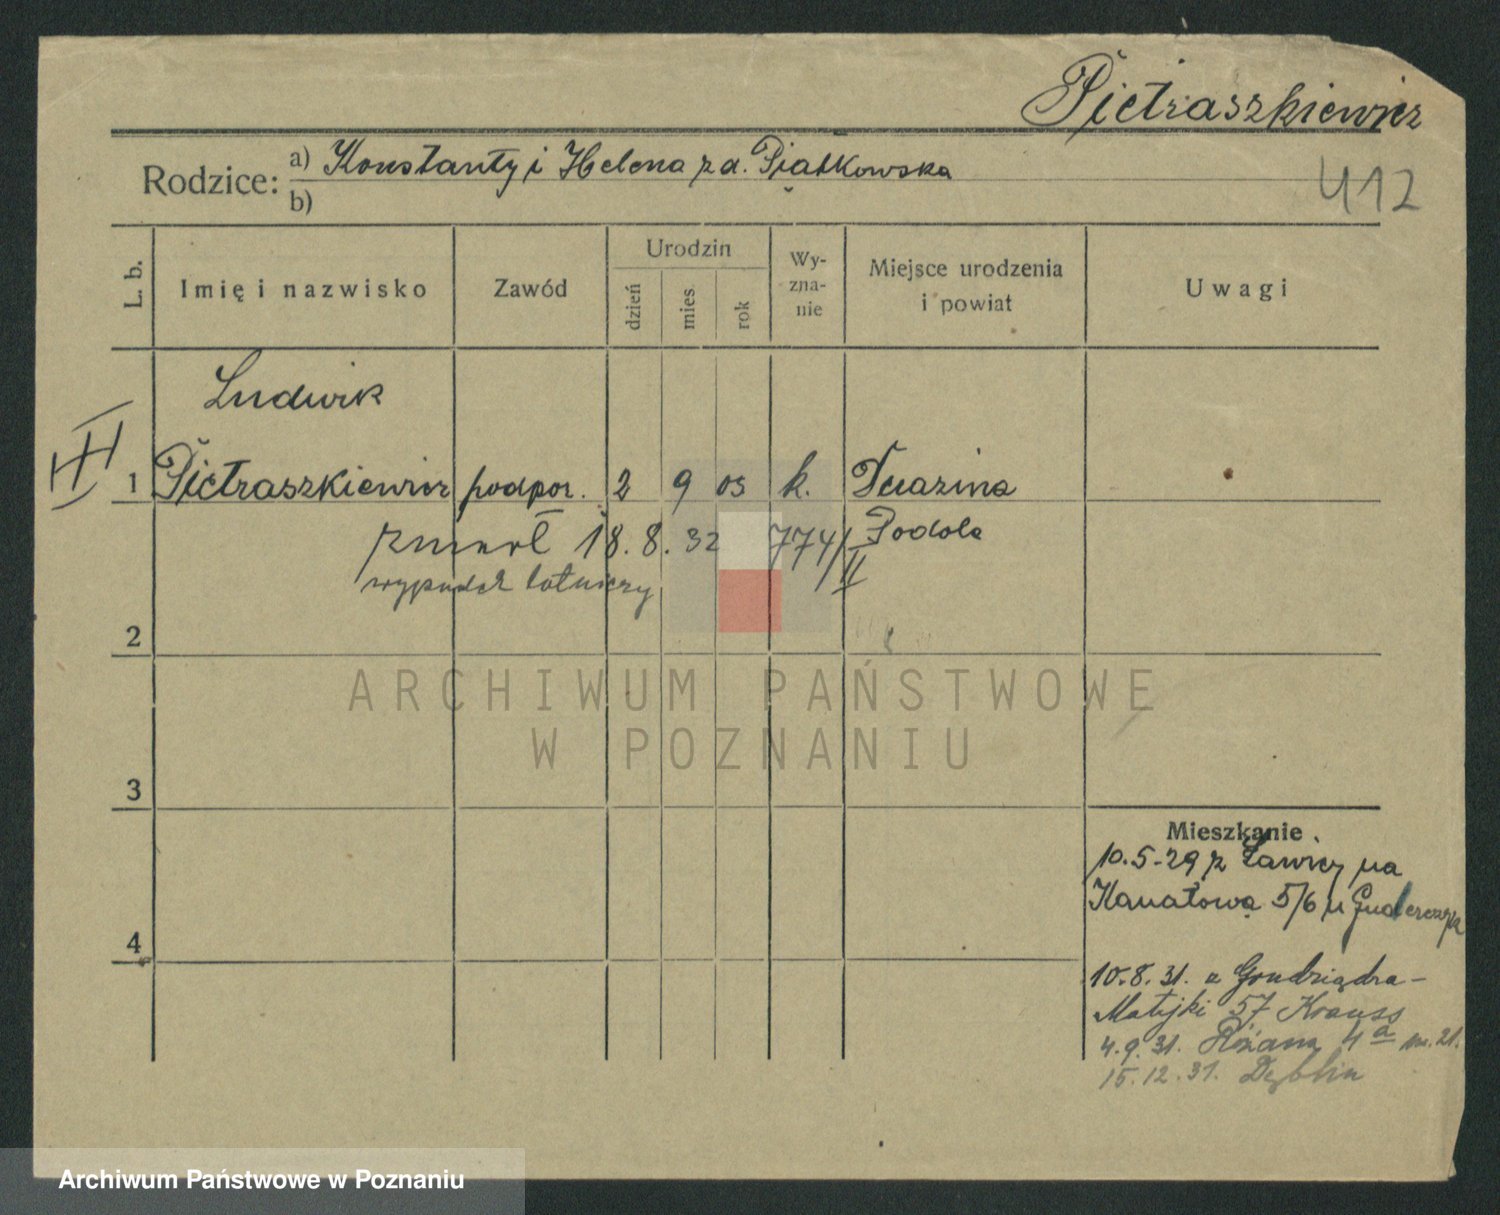 Pietraszkiewicz
Rodzice: a) Konstanty i Helena z d. Piątkowska
b)
412
L. b.
Imię i nazwisko
Zawód
Urodzin
dzień
mies
rok
Wy-
zna-
nie
Miejsce urodzenia
i powiat
Uwagi
Ludwik
1 Pietraszkiewicz podpor. 2 9 05 k.
zmarł 18.8.32 774/II Podole
wypadek lotniczy
2
ARCHIWUM PAŃSTWOWE
W POZNANIU
3
Mieszkanie
10.5-29 z Ławicy na
Kanałową 5/6 u
4
10.8.31. z Grudziądza -
Matejki 57 Krauss
4.9.31. Różana 4a m. 21.
15.12.31. Dęblin
Archiwum Państwowe w Poznaniu